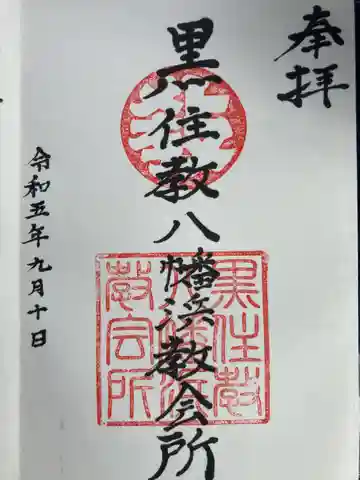 奉拝
黒住教八幡浜教会所
令和五年九月十日
黒住教
教会所